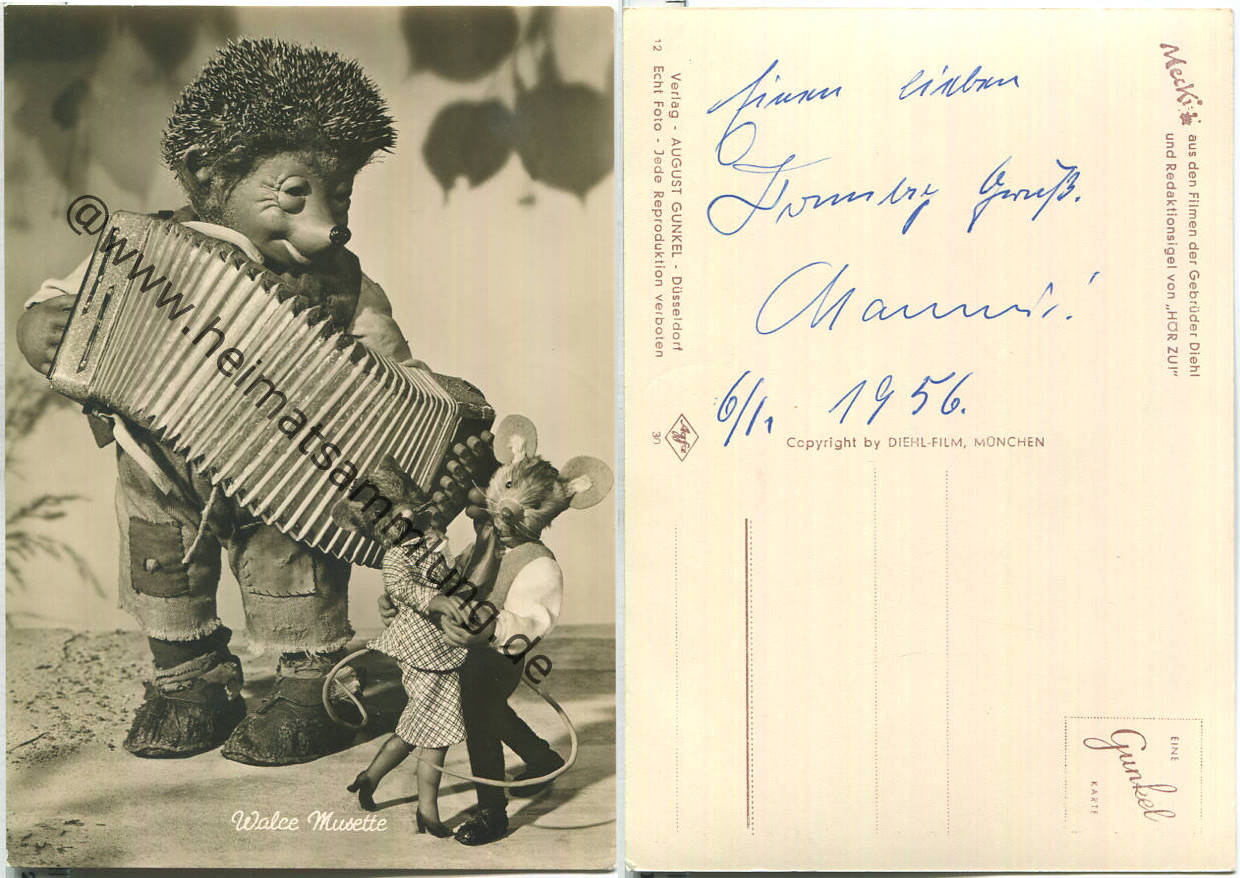 Walce Musette
@www.heimatsammlung.de
Einen lieben
Gruß.
6/1. 1956.
Copyright by DIEHL-FILM, MÜNCHEN
12 Echt Foto - Jede Reproduktion verboten
Verlag - AUGUST GUNKEL - Düsseldorf
30
Agfa
Mecki
aus den Filmen der Gebrüder Diehl
und Redaktionsigel von „HÖR ZU!"
EINE
Gunkel
KARTE